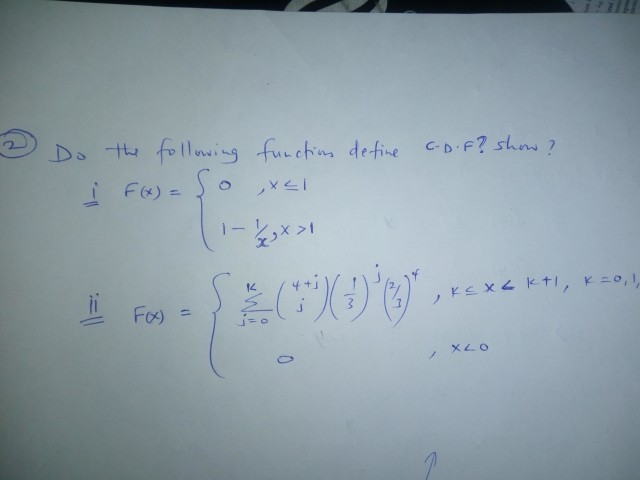 ② Do the following function define C.D.F? show?
i F(x) = { 0 , x ≤ 1
1 - 1/x, x > 1
ii F(x) = { Σ_{j=0}^{k} (4+j choose j) (1/3)^j (2/3)^4 , k ≤ x < k+1, k = 0,1,
0 , x < 0